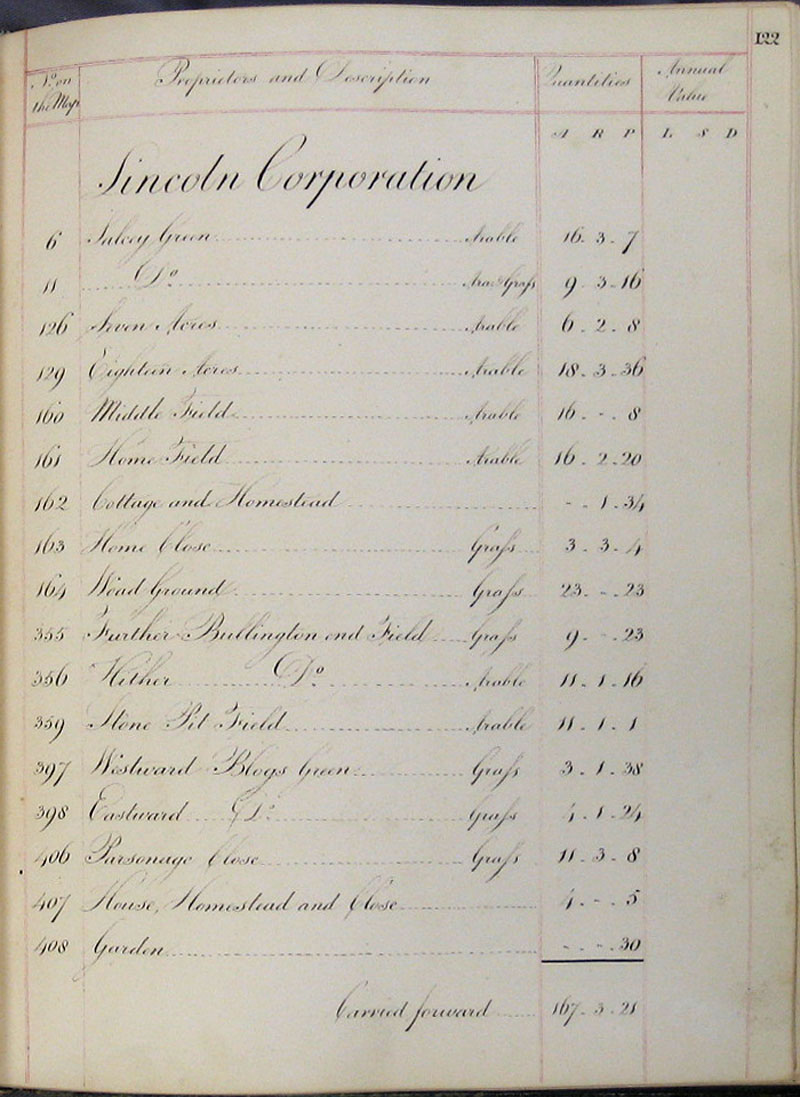 122
No. on the Map Proprietors and Description Quantities Annual Value
A R P L S D
Lincoln Corporation
6 Salcey Green Arable 16 . 3 . 7
11 Do. Ara. & Grass 9 . 3 . 16
126 Seven Acres Arable 6 . 2 . 8
129 Eighteen Acres Arable 18 . 3 . 36
160 Middle Field Arable 16 . - . 8
161 Home Field Arable 16 . 2 . 20
162 Cottage and Homestead - . 1 . 34
163 Home Close Grass 3 . 3 . 4
164 Woad Ground Grass 23 . - . 23
355 Further Bullington end Field Grass 9 . - . 23
356 Hither Do. Arable 11 . 1 . 16
359 Stone Pit Field Arable 11 . 1 . 1
397 Westward Blogs Green Grass 3 . 1 . 38
398 Eastward Do. Grass 4 . 1 . 24
406 Parsonage Close Grass 11 . 3 . 8
407 House, Homestead and Close 4 . - . 5
408 Garden - . - . 30
Carried forward 167 . 3 . 21